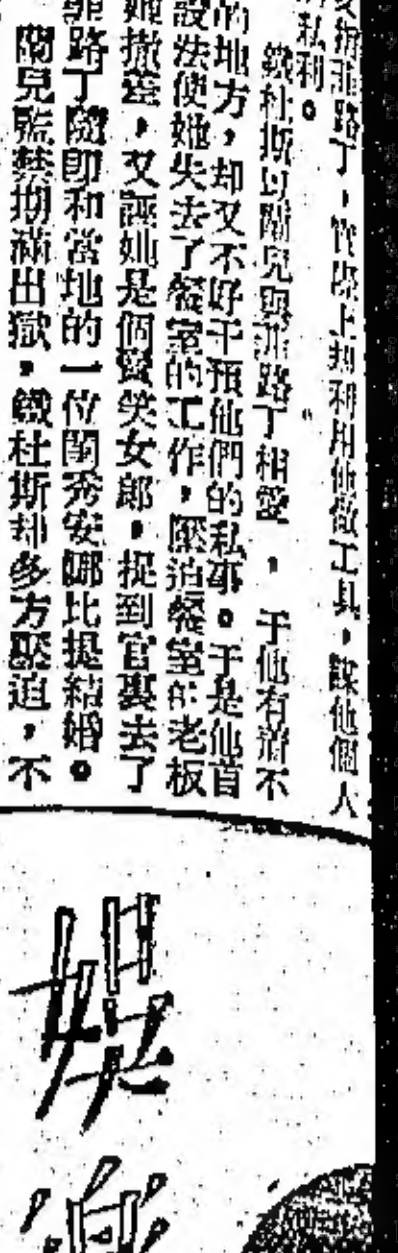 路丁，實際上却利用他做工具，謀他個人
私利。
鐵杜斯以蘭兒與菲路丁相愛，于他有着不
的地方，却又不好干預他們的私事。于是他首
設法使她失去了餐室的工作，壓迫餐室的老板
她撤差，又誣她是個賣笑女郎，捉到官裏去了
菲路丁隨即和當地的一位閨秀安娜比提結婚。
蘭兒監禁期滿出獄，鐵杜斯却多方壓迫，不
娛
樂